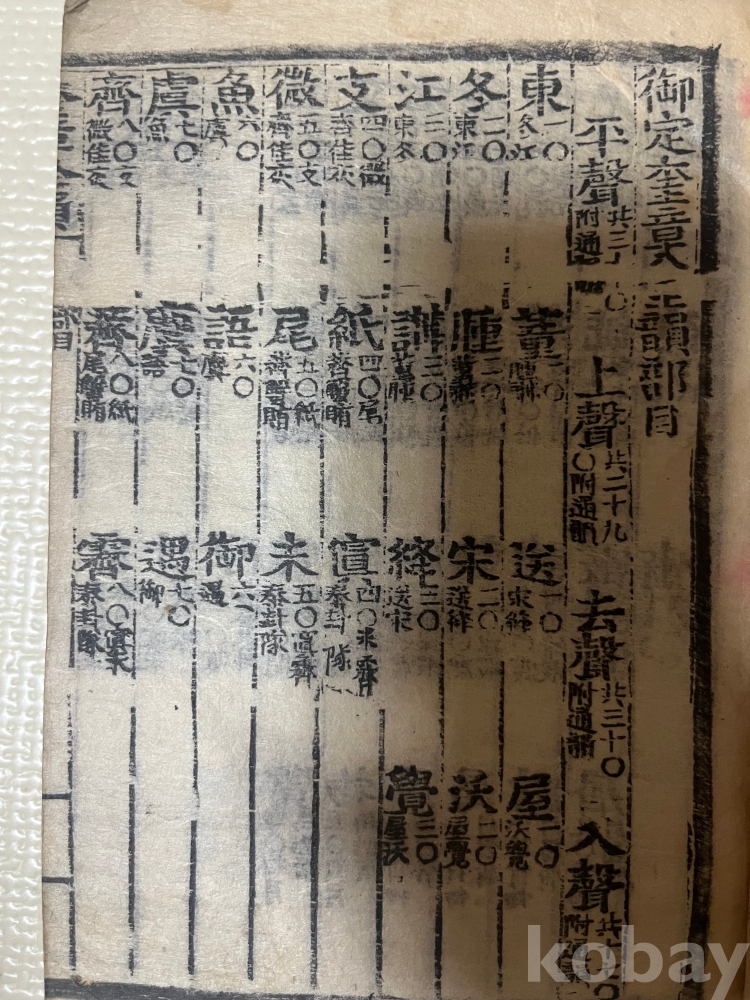 御定奎章 韻部目
平聲 共三 附通 〇 上聲 共二十九〇附通韻 去聲 共三十〇附通韻 入聲 共十 附
東 一〇冬江 董 一〇腫講 送 一〇宋絳 屋 一〇沃覺
冬 二〇東江 腫 二〇董講 宋 二〇送絳 沃 二〇屋覺
江 三〇東冬 講 三〇董腫 絳 三〇送宋 覺 三〇屋沃
支 四〇微齊佳灰 紙 四〇尾薺蟹賄 寘 四〇未霽泰卦隊
微 五〇支齊佳灰 尾 五〇紙薺蟹賄 未 五〇寘霽泰卦隊
魚 六〇虞 語 六〇麌 御 六〇遇
虞 七〇魚 麌 七〇語 遇 七〇御
齊 八〇支微佳灰 薺 八〇紙尾蟹賄 霽 八〇寘未泰卦隊
奎章全韻 部目
kobay